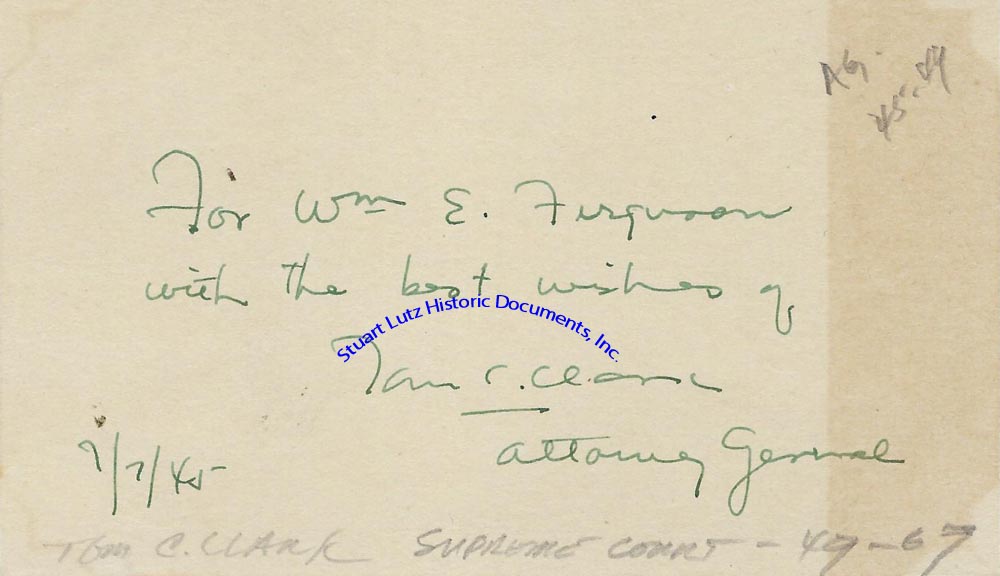 AG.
45-49
For Wm E. Ferguson
with the best wishes of
Stuart Lutz Historic Documents, Inc.
Tom C. Clark
Attorney General
7/7/45
TOM C. CLARK SUPREME COURT - 49-67